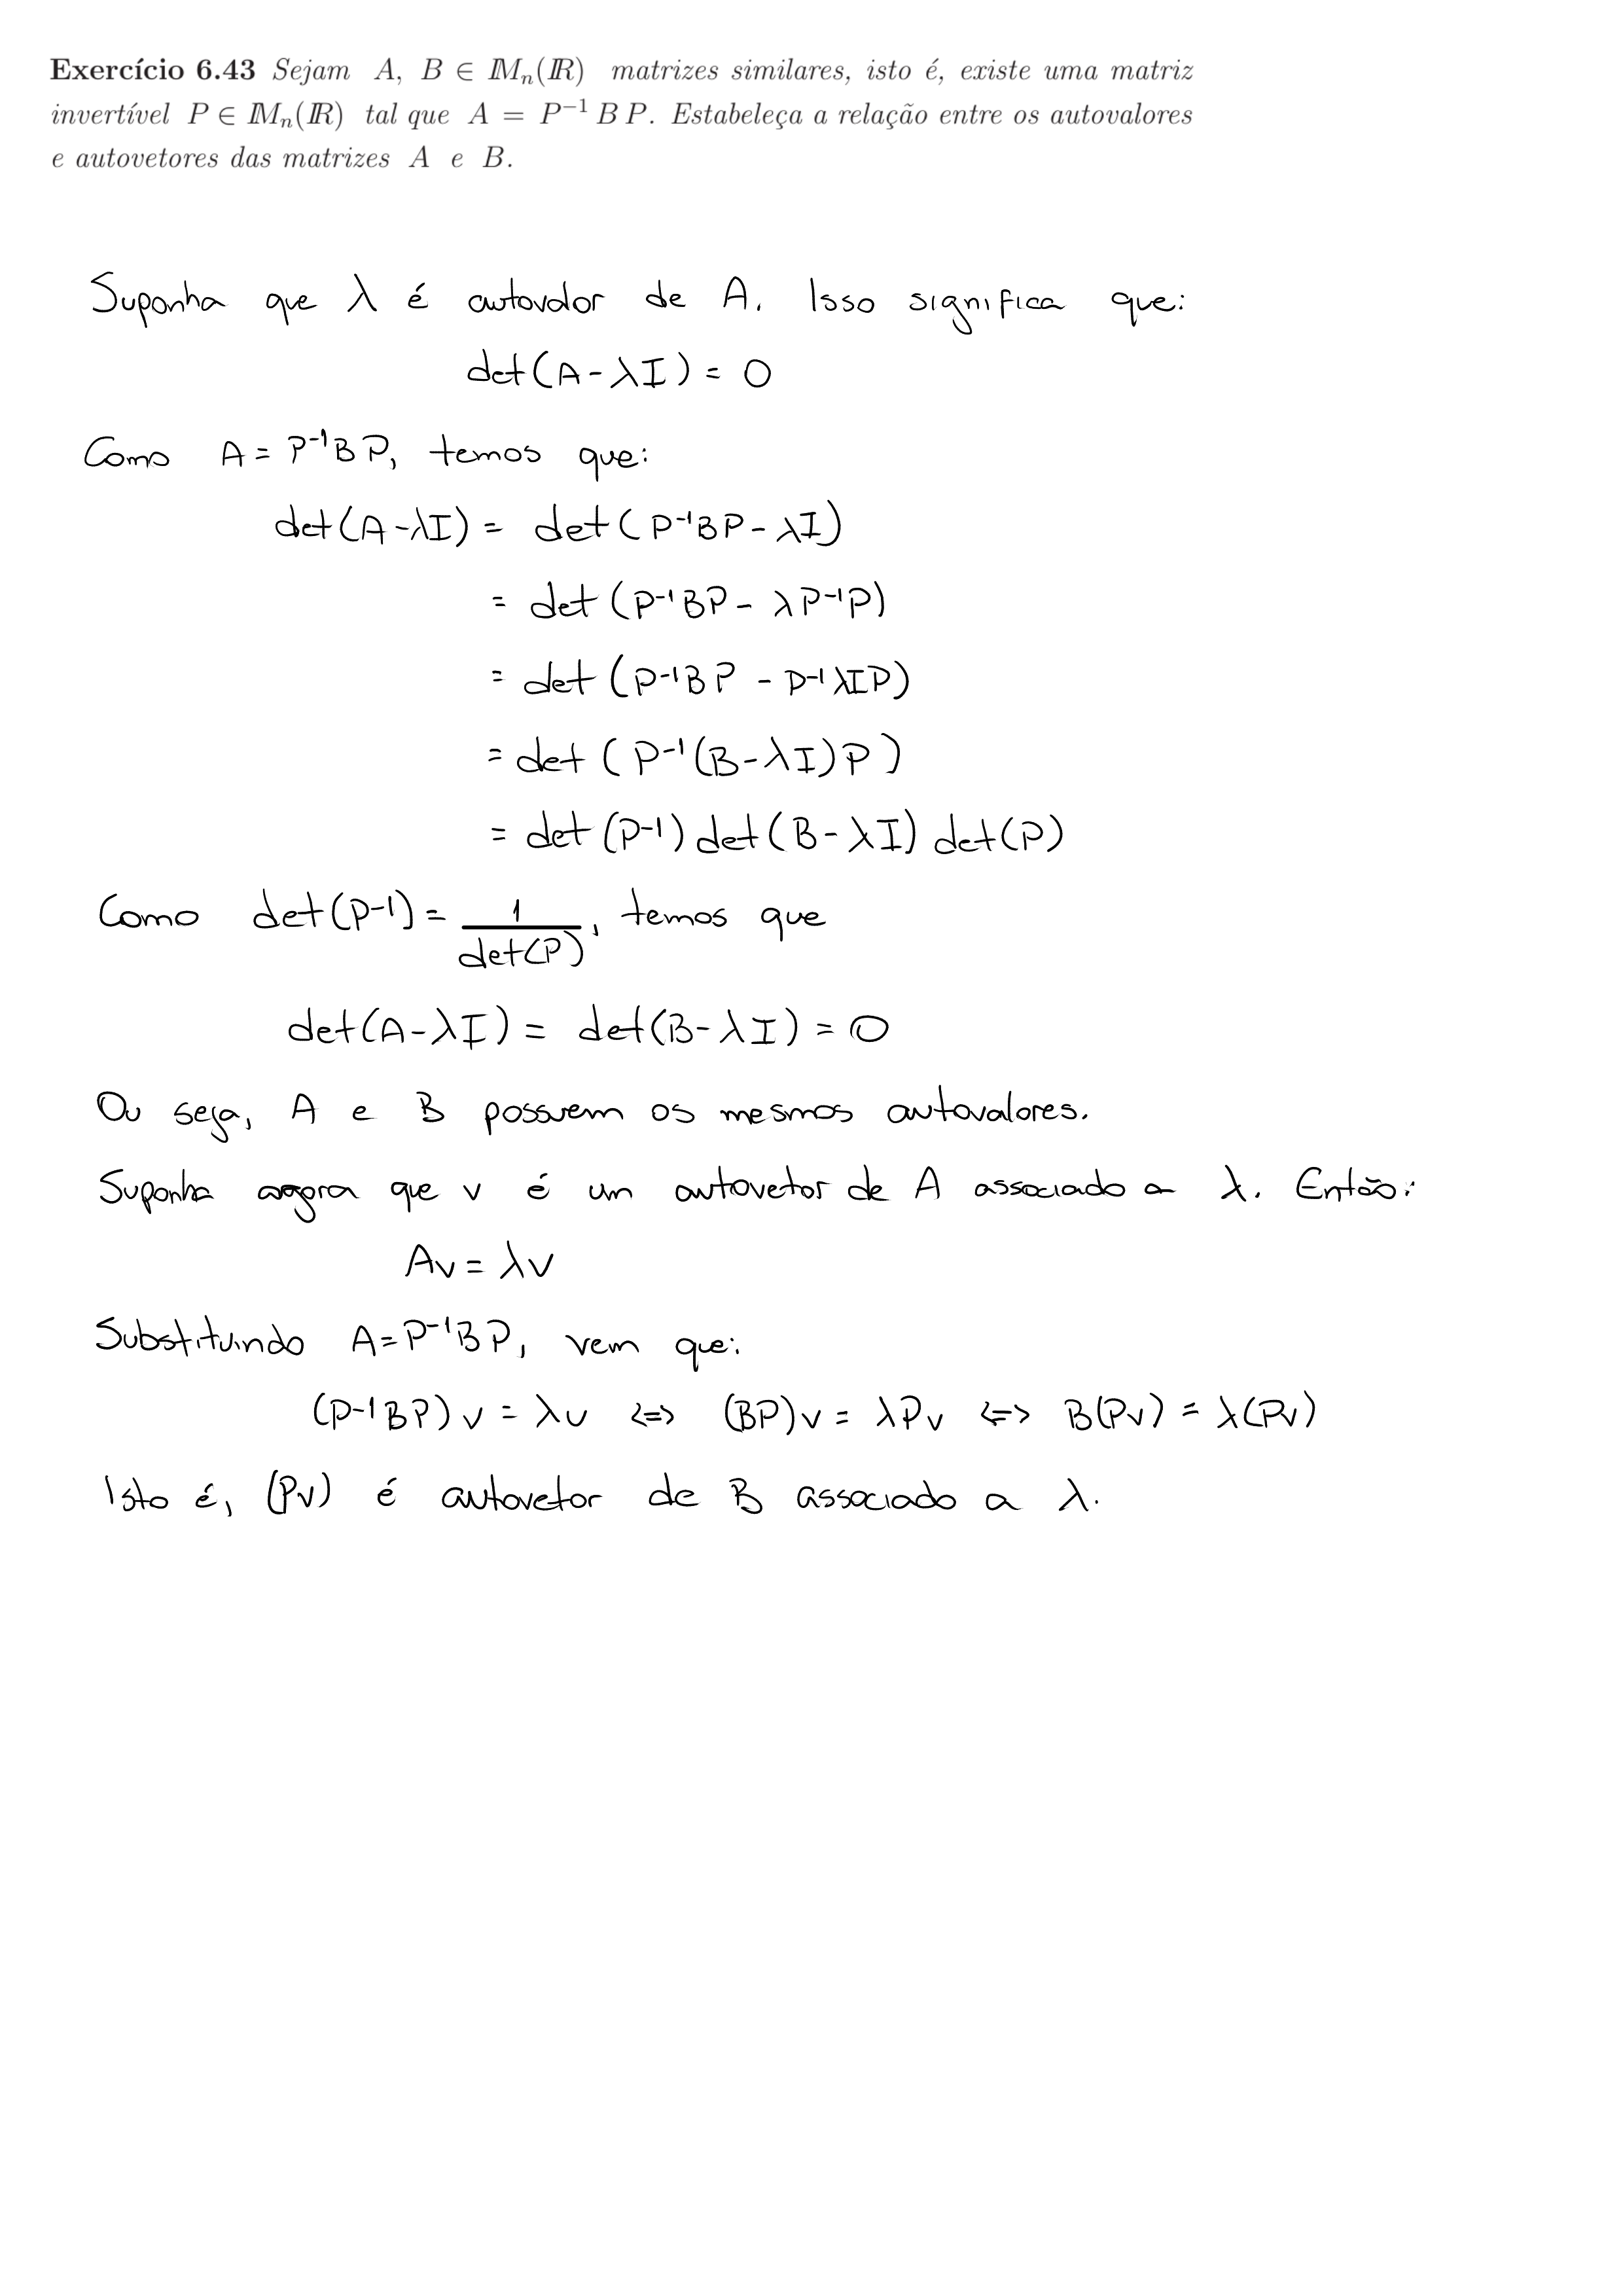 Exercício 6.43 Sejam A, B ∈ IMn(IR) matrizes similares, isto é, existe uma matriz
invertível P ∈ IMn(IR) tal que A = P⁻¹ B P. Estabeleça a relação entre os autovalores
e autovetores das matrizes A e B.
Suponha que λ é autovalor de A. Isso significa que:
det(A-λI) = 0
Como A = P⁻¹BP, temos que:
det(A-λI) = det(P⁻¹BP - λI)
= det(P⁻¹BP - λP⁻¹P)
= det(P⁻¹BP - P⁻¹λIP)
= det(P⁻¹(B-λI)P)
= det(P⁻¹) det(B-λI) det(P)
Como det(P⁻¹) = 1/det(P), temos que
det(A-λI) = det(B-λI) = 0
Ou seja, A e B possuem os mesmos autovalores.
Suponha agora que v é um autovetor de A associado a λ. Então:
Av = λv
Substituindo A=P⁻¹BP, vem que:
(P⁻¹BP)v = λv <=> (BP)v = λPv <=> B(Pv) = λ(Pv)
Isto é, (Pv) é autovetor de B associado a λ.